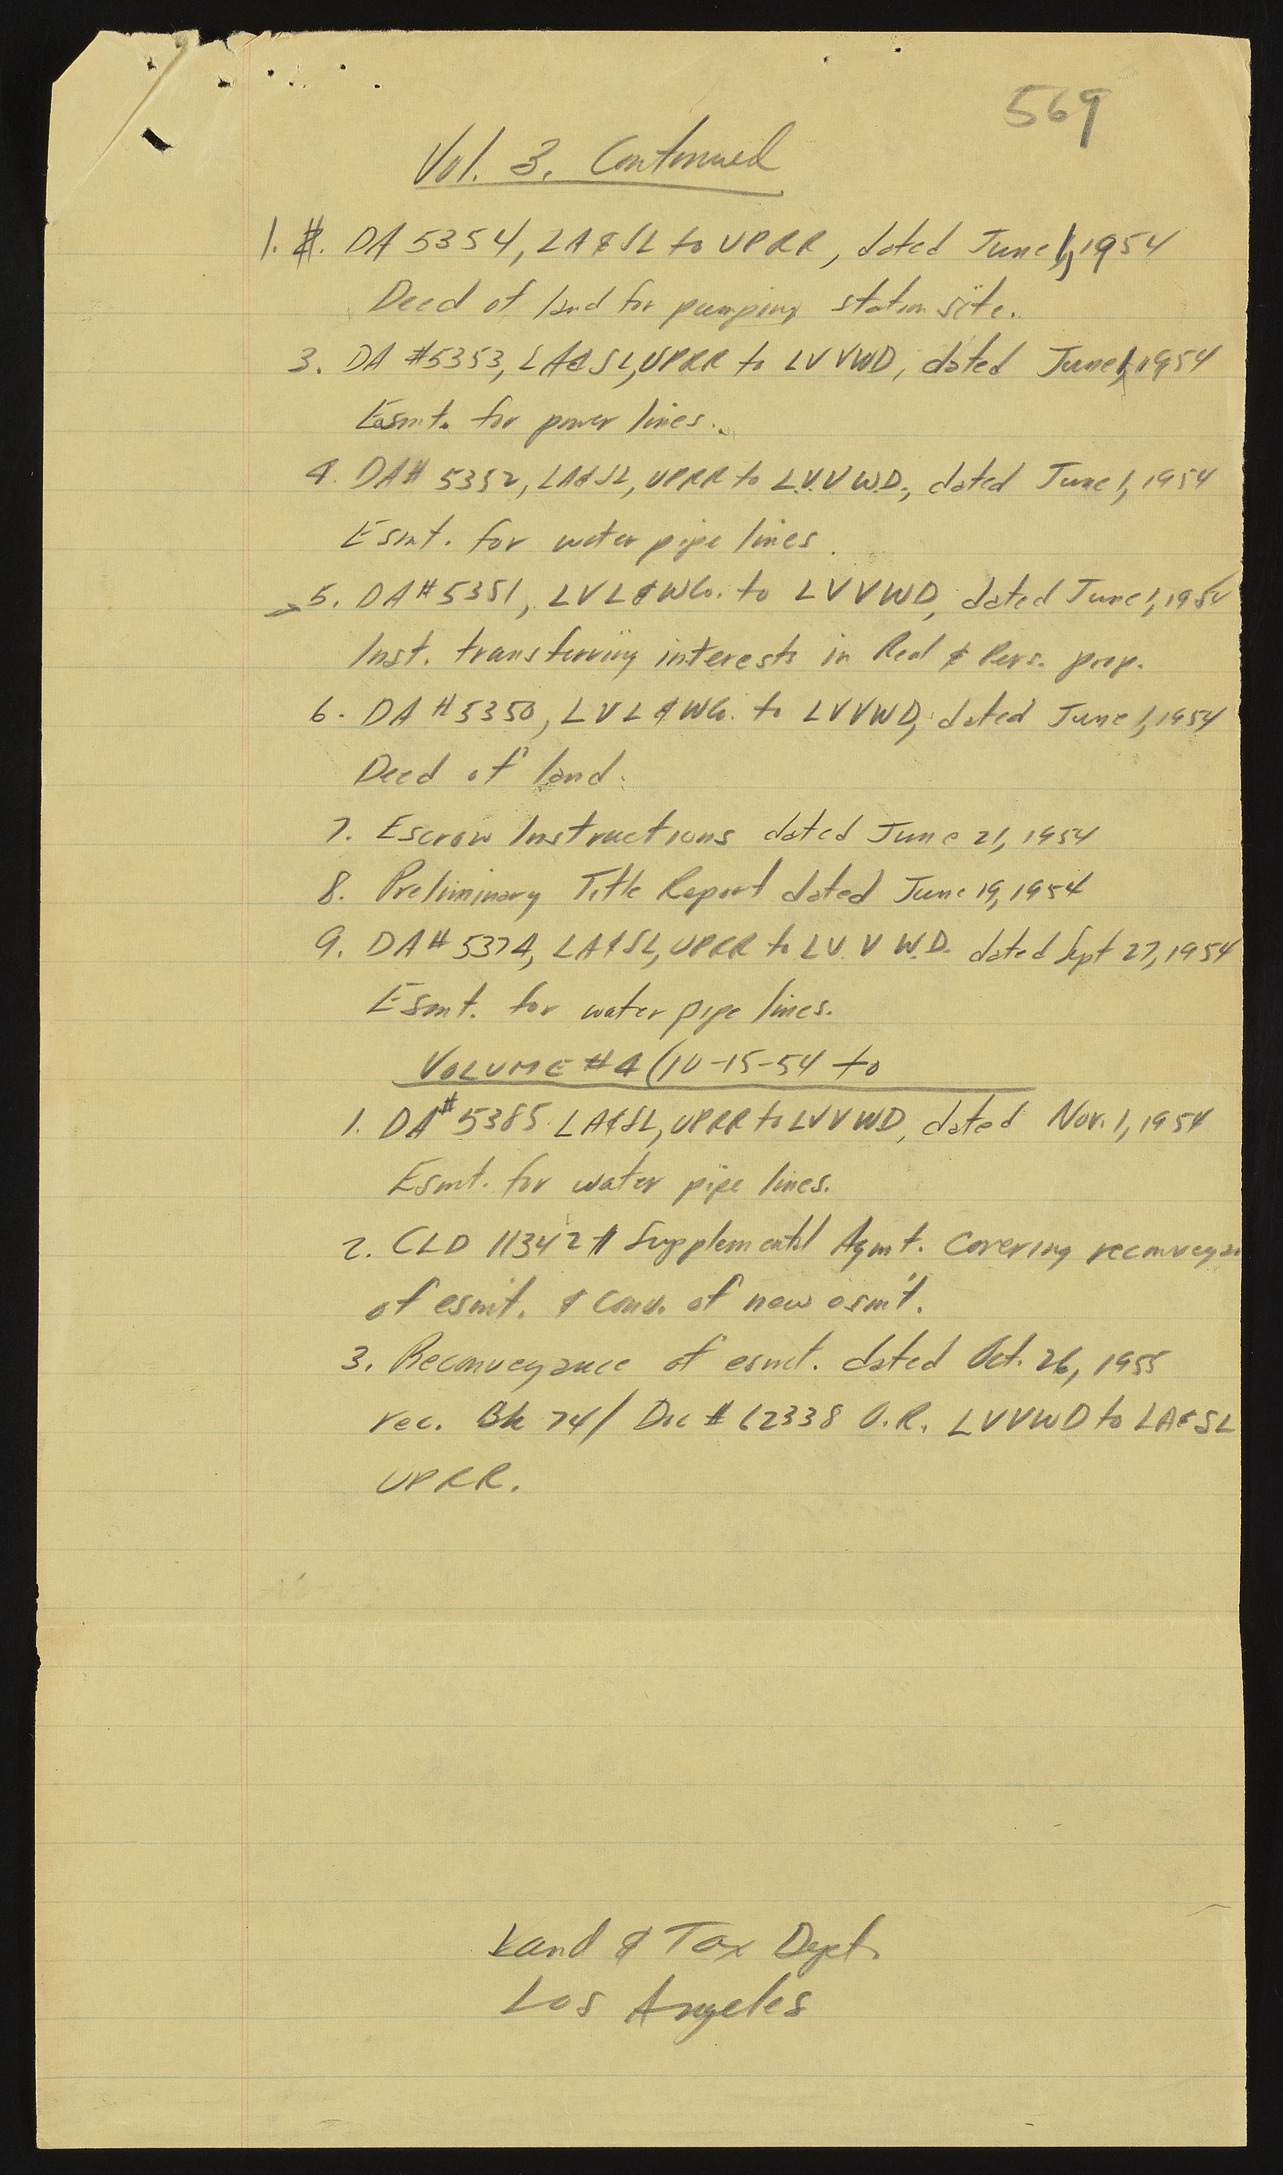 569
Vol. 3. Continued
1. 2. DA 5354, LA&SL to UPRR, dated June 1, 1954
Deed of land for pumping station site.
3. DA #5353, LA&SL, UPRR to LVVWD, dated June 1, 1954
Esmt. for power lines.
4. DA# 5352, LA&SL, UPRR to L.V.V.W.D., dated June 1, 1954
Esmt. for water pipe lines.
5. DA# 5351, LVL&WCo. to LVVWD, dated June 1, 1954
Inst. transferring interests in Real & Pers. prop.
6. DA #5350, LVL&WCo. to LVVWD, dated June 1, 1954
Deed of land.
7. Escrow Instructions dated June 21, 1954
8. Preliminary Title Report dated June 19, 1954
9. DA# 5374, LA&SL, UPRR to L.V.V.W.D. dated Sept 27, 1954
Esmt. for water pipe lines.
VOLUME #4 (10-15-54 to
1. DA# 5385 LA&SL, UPRR to LVVWD, dated Nov. 1, 1954
Esmt. for water pipe lines.
2. CLD 11342 Supplemental Agmt. covering reconveyan
of esm't. & conv. of new esm't.
3. Reconveyance of esmt. dated Oct. 26, 1955
rec. Bk 74/ Doc # 62338 O.R. LVVWD to LA&SL
UPRR.
Land & Tax Dept.
Los Angeles